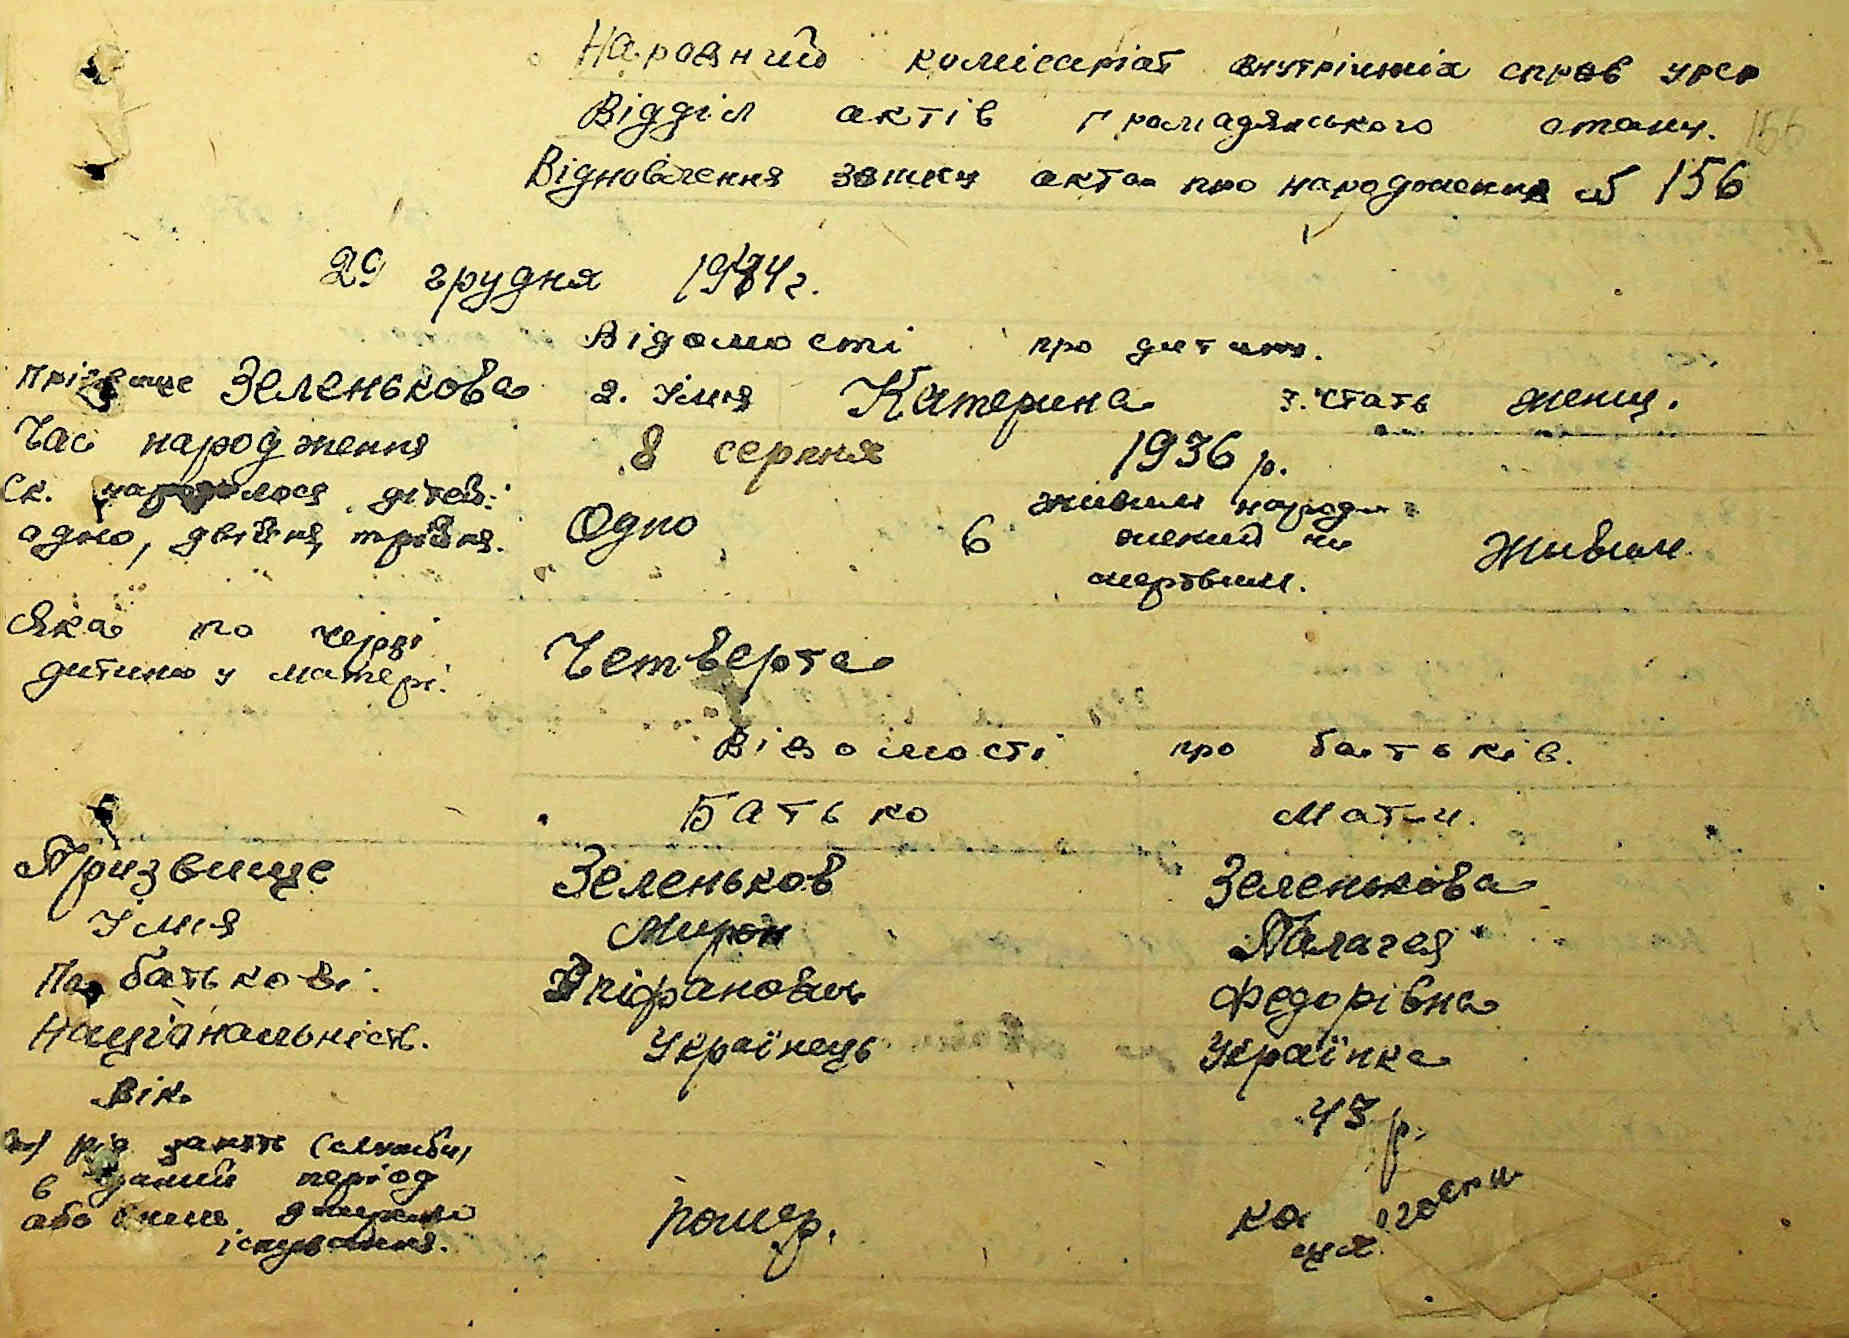 Народний комісаріат внутрішніх справ УРСР
Відділ актів громадянського стану. 156
Відновлення запису акта про народження № 156
29 грудня 1944 г.
Відомості про дитину.
Прізвище Зеленькова 2. Ім'я Катерина 3. Стать женщ.
Час народження 8 серпня 1936 р.
Ск. народилося дітей:
одно, двійня, трійня. Одно 6 живим народжений чи мертвим. Живим
Яка по черзі
дитина у матері. Четверта
Відомості про батьків.
Батько Мати.
Призвище Зеленьков Зеленькова
Ім'я Мирон Пелагея
По батькові Епіфанович Федорівна
Національність. Українець Українка
Вік. 43 р.
рід занять (служби)
в даний період
або інше джерело
існування. помер.